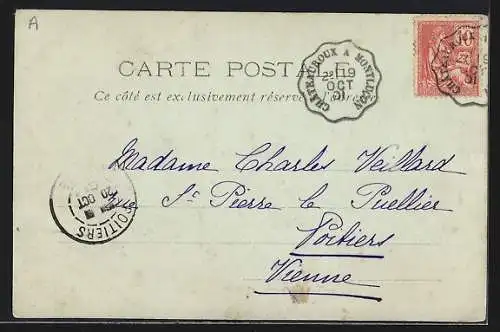 A
CARTE POSTALE
Ce côté est exclusivement réservé à l'adresse
CHATEAUROUX A MONTLUÇON
2° 19
OCT
01
10
Madame Charles Veillard
Rue St. Pierre le Puellier
Poitiers
Vienne
POITIERS
20 OCT